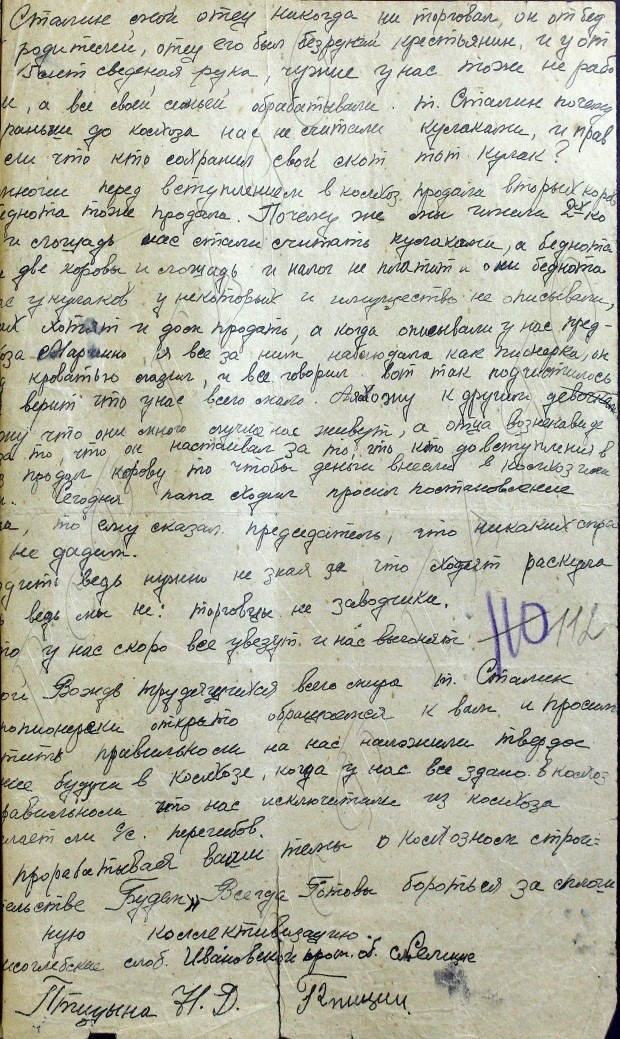 Сталин мой отец никогда ни торговал, он от бед
родителей, отец его был безрукий крестьянин, и у от
сведеная рука, чужие у нас тоже не рабо
и, а все своей семьей обрабатывали. т. Сталин почему
раньши до колхоза нас не считали кулаками, и прав
сли что кто сохранил свой скот тот кулак?
многии перед вступлением в колхоз продала вторых коров
беднота тоже продала. Почему же мы имели 2ух ко
и лошадь нас стали считать кулаками, а беднота
две коровы и лошадь и налог не платит и они беднота
у кулаков у некоторых и имущество не описывали,
хотят и дом продать, а когда описывали у нас пред-
оза я все за ним наблюдала как пионерка, он
кроватью смотрел, и все говорил вот так подчистилось
верит что у нас всего мало. Я хожу к другим девочкам
жу что они много лучше нас живут, а отца возненавиде
за то что он настаивал за то, что кто до вступления в
продал корову то чтобы деньги внесли в колхоз
и. Сегодня папа ходил просил постановление
за, то ему сказал председатель, что никаких спра
не дадим.
ведь нужно не зная за что ходят раскула
ведь мы не: торговцы не заводчики.
то у нас скоро все увезут и нас выгонят 110 112
ой Вождь трудящихся всего мира т. Сталин
пионерски открыто обращаемся к вам и просим
правильноли на нас наложили твердое
же будучи в колхозе, когда у нас все здано в колхоз
равильноли что нас исключитали из колхоза
ли ес. перегибов.
прорабатывая ваши темы о колхозном строи=
ельстве Будем „Всегда Готовы бороться за сплош
ную коллективизацию.
исоглебские слоб. Ивановской пром. об. с. Селище
Птицына Н. Д. Птицин.